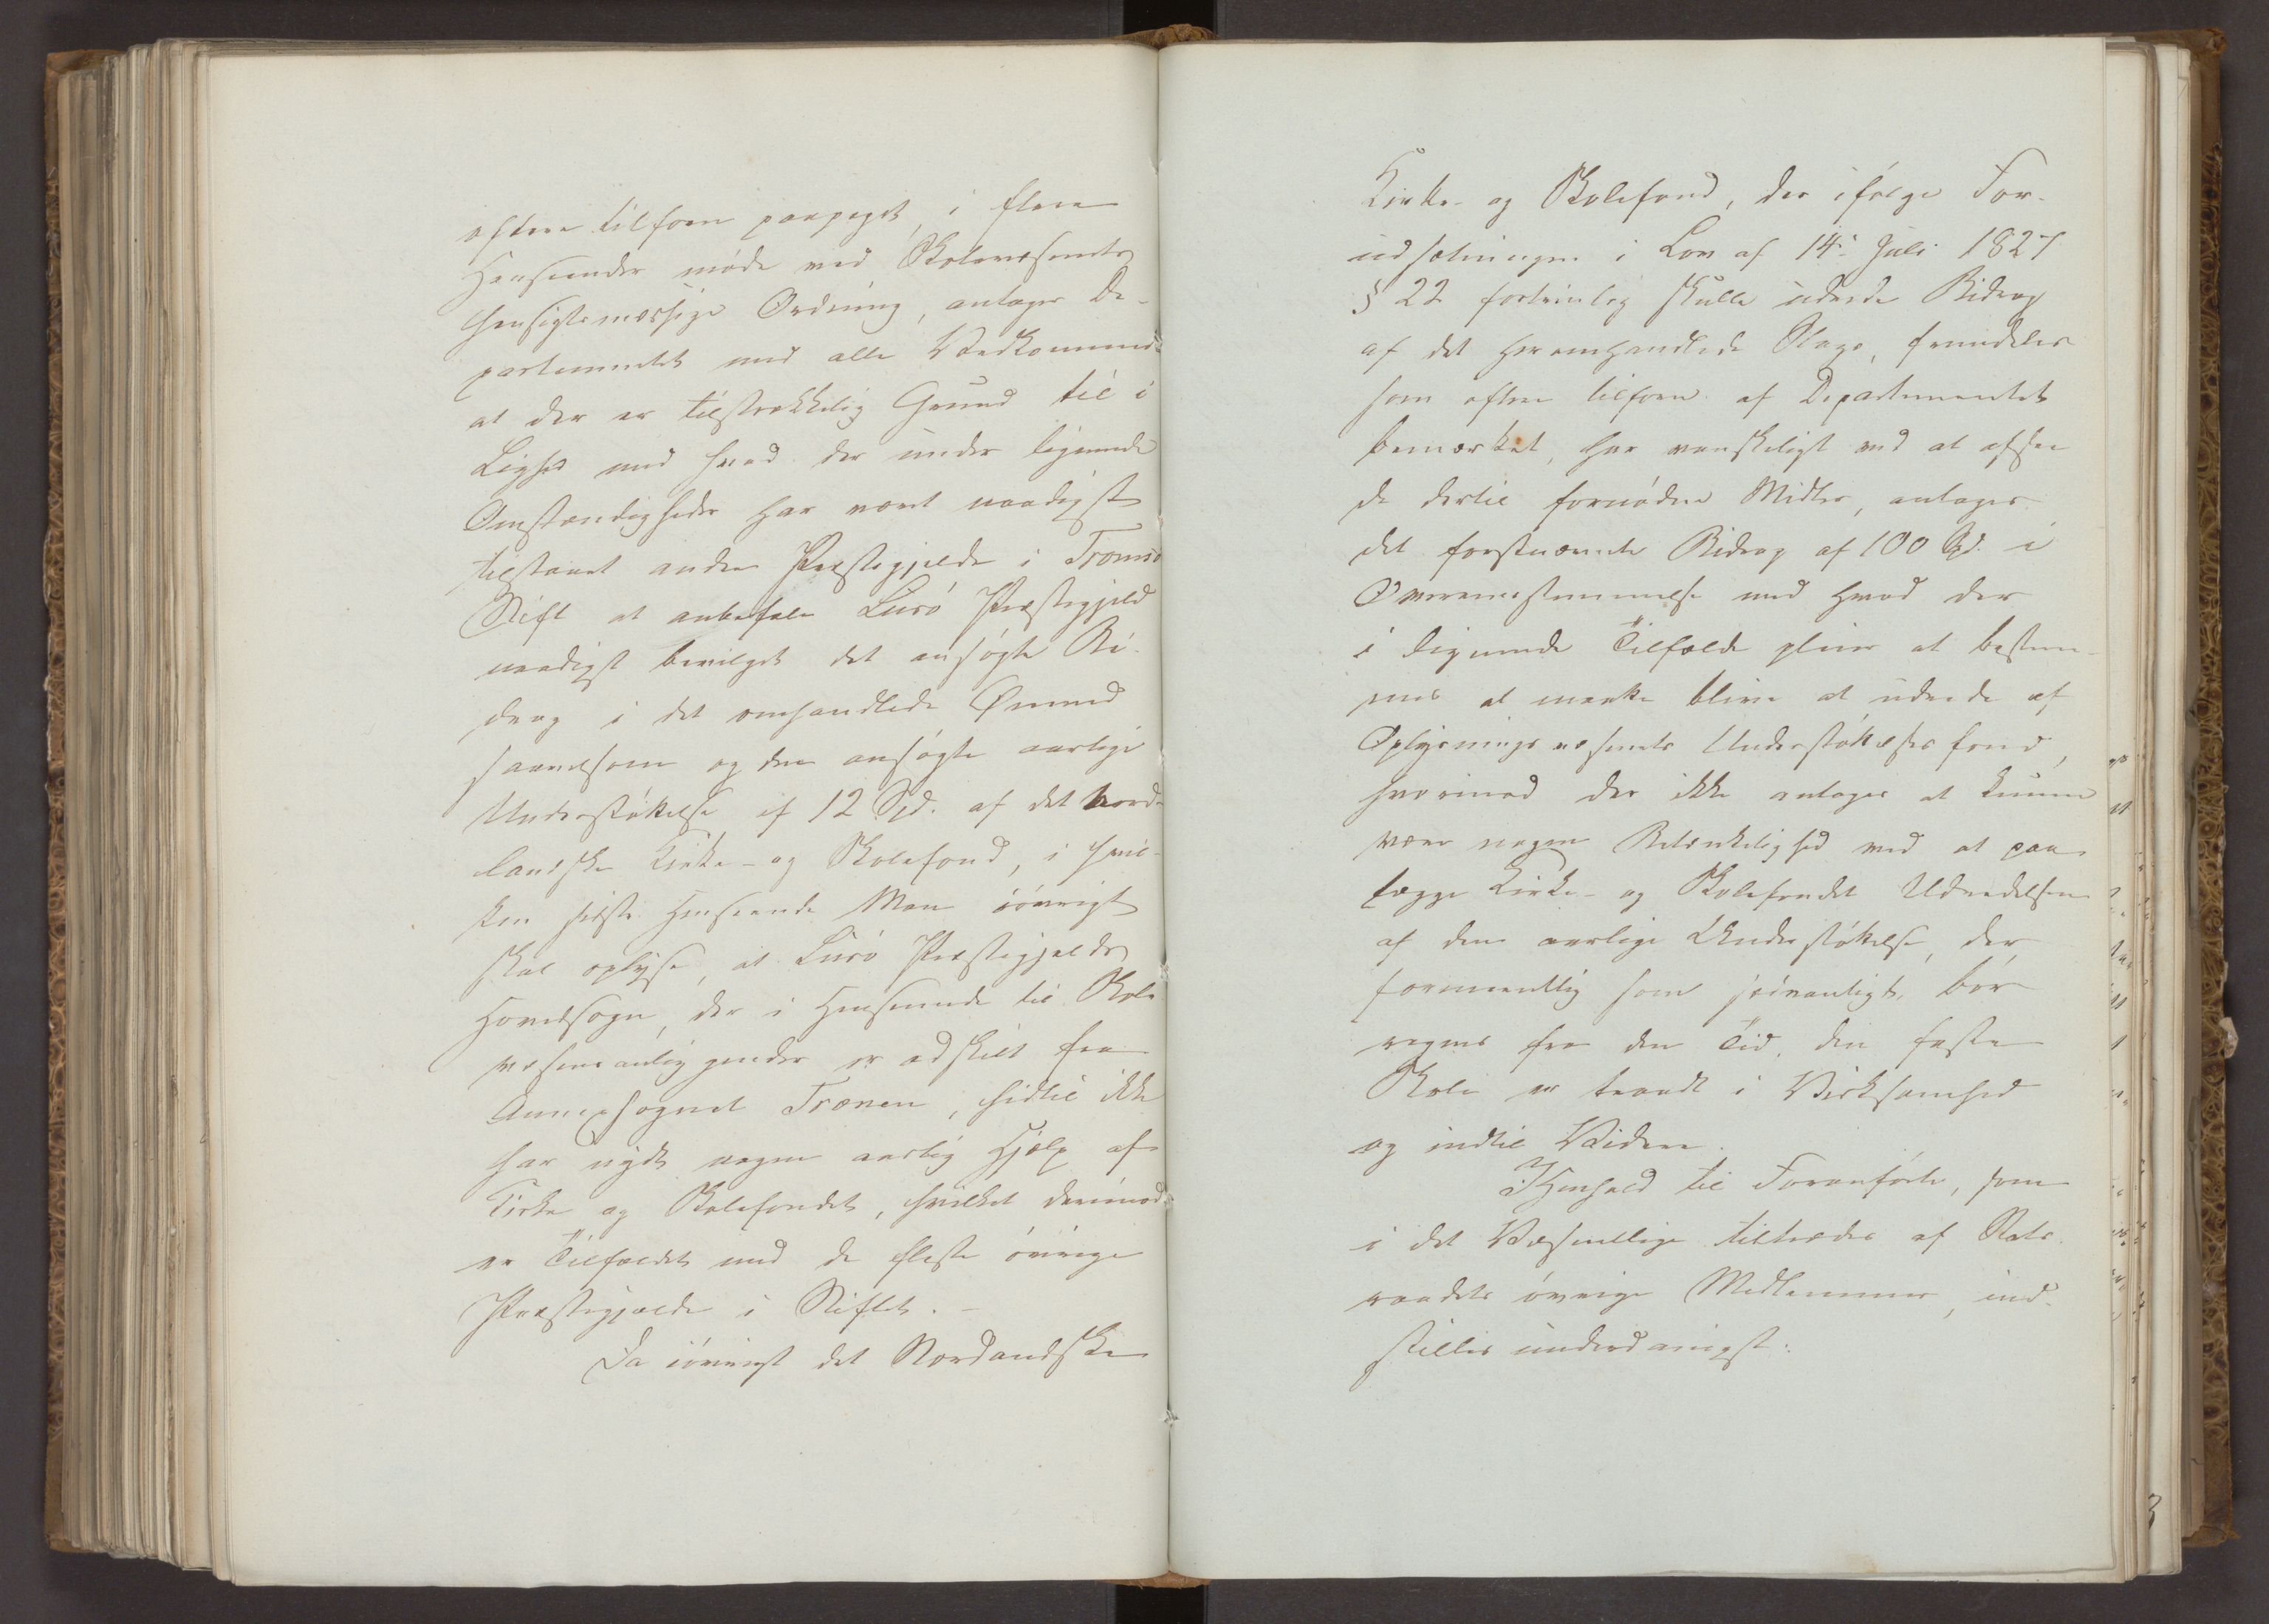 oftere tilforn paapeget, i flere
Henseender møde ved Skolevæsenets
hensigtsmæssige Ordning, antager De-
partementet med alle Vedkommende
at der er tilstrækkelig Grund til i
Lighed med hvad der under lignende
Omstændigheder har været naadigst
tilstaaet andre Præstegjelde i Tromsø
Stift at anbefale Lurø Præstegjeld
naadigst bevilget det ansøgte Bi-
drag i det omhandlede Øiemed
saavelsom og den ansøgte aarlige
Understøttelse af 12 Spd. af det nord-
landske Kirke- og Skolefond, i hvil-
ken sidste Henseende Man iøvrigt
skal oplyse, at Lurø Præstegjelds
Hovedsogn, der i Henseende til Skole
væsensanliggender er adskilt fra
Annexsognet Trænen, hidtil ikke
har nydt nogen aarlig Hjælp af
Kirke og Skolefondet, hvilket derimod
er Tilfældet med de fleste øvrige
Præstegjælde i Stiftet. -
Da iøvrigt det Nordlandske
Kirke- og Skolefond, der ifølge For-
udsætningen i Lov af 14de Juli 1827
§ 22 fortrinlig skulle udrede Bidrag
af det heromhandlede Slags, fremdeles
som oftere tilforn af Departementet
bemærket, har vanskeligt ved at afsee
de dertil fornødne Midler, antages
det førstnævnte Bidrag af 100 Spd. i
Overensstemmelse med hvad der
i lignende Tilfælde pleier at bestem-
mes at maatte blive at udrede af
Oplysningsvæsenets Understøttelsesfond,
hvorimod der ikke antages at kunne
være nogen Betænkelighed ved at paa-
lægge Kirke- og Skolefondet Udredelsen
af den aarlige Understøttelse, der
formentlig som sædvanligt, bør
regnes fra den Tid, den faste
Skole er traadt i Virksomhed
og indtil Videre.
I Henhold til Foranførte, som
i det Væsentlige tiltrædes af Stats-
raadets øvrige Medlemmer, ind-
stilles underdanigst: